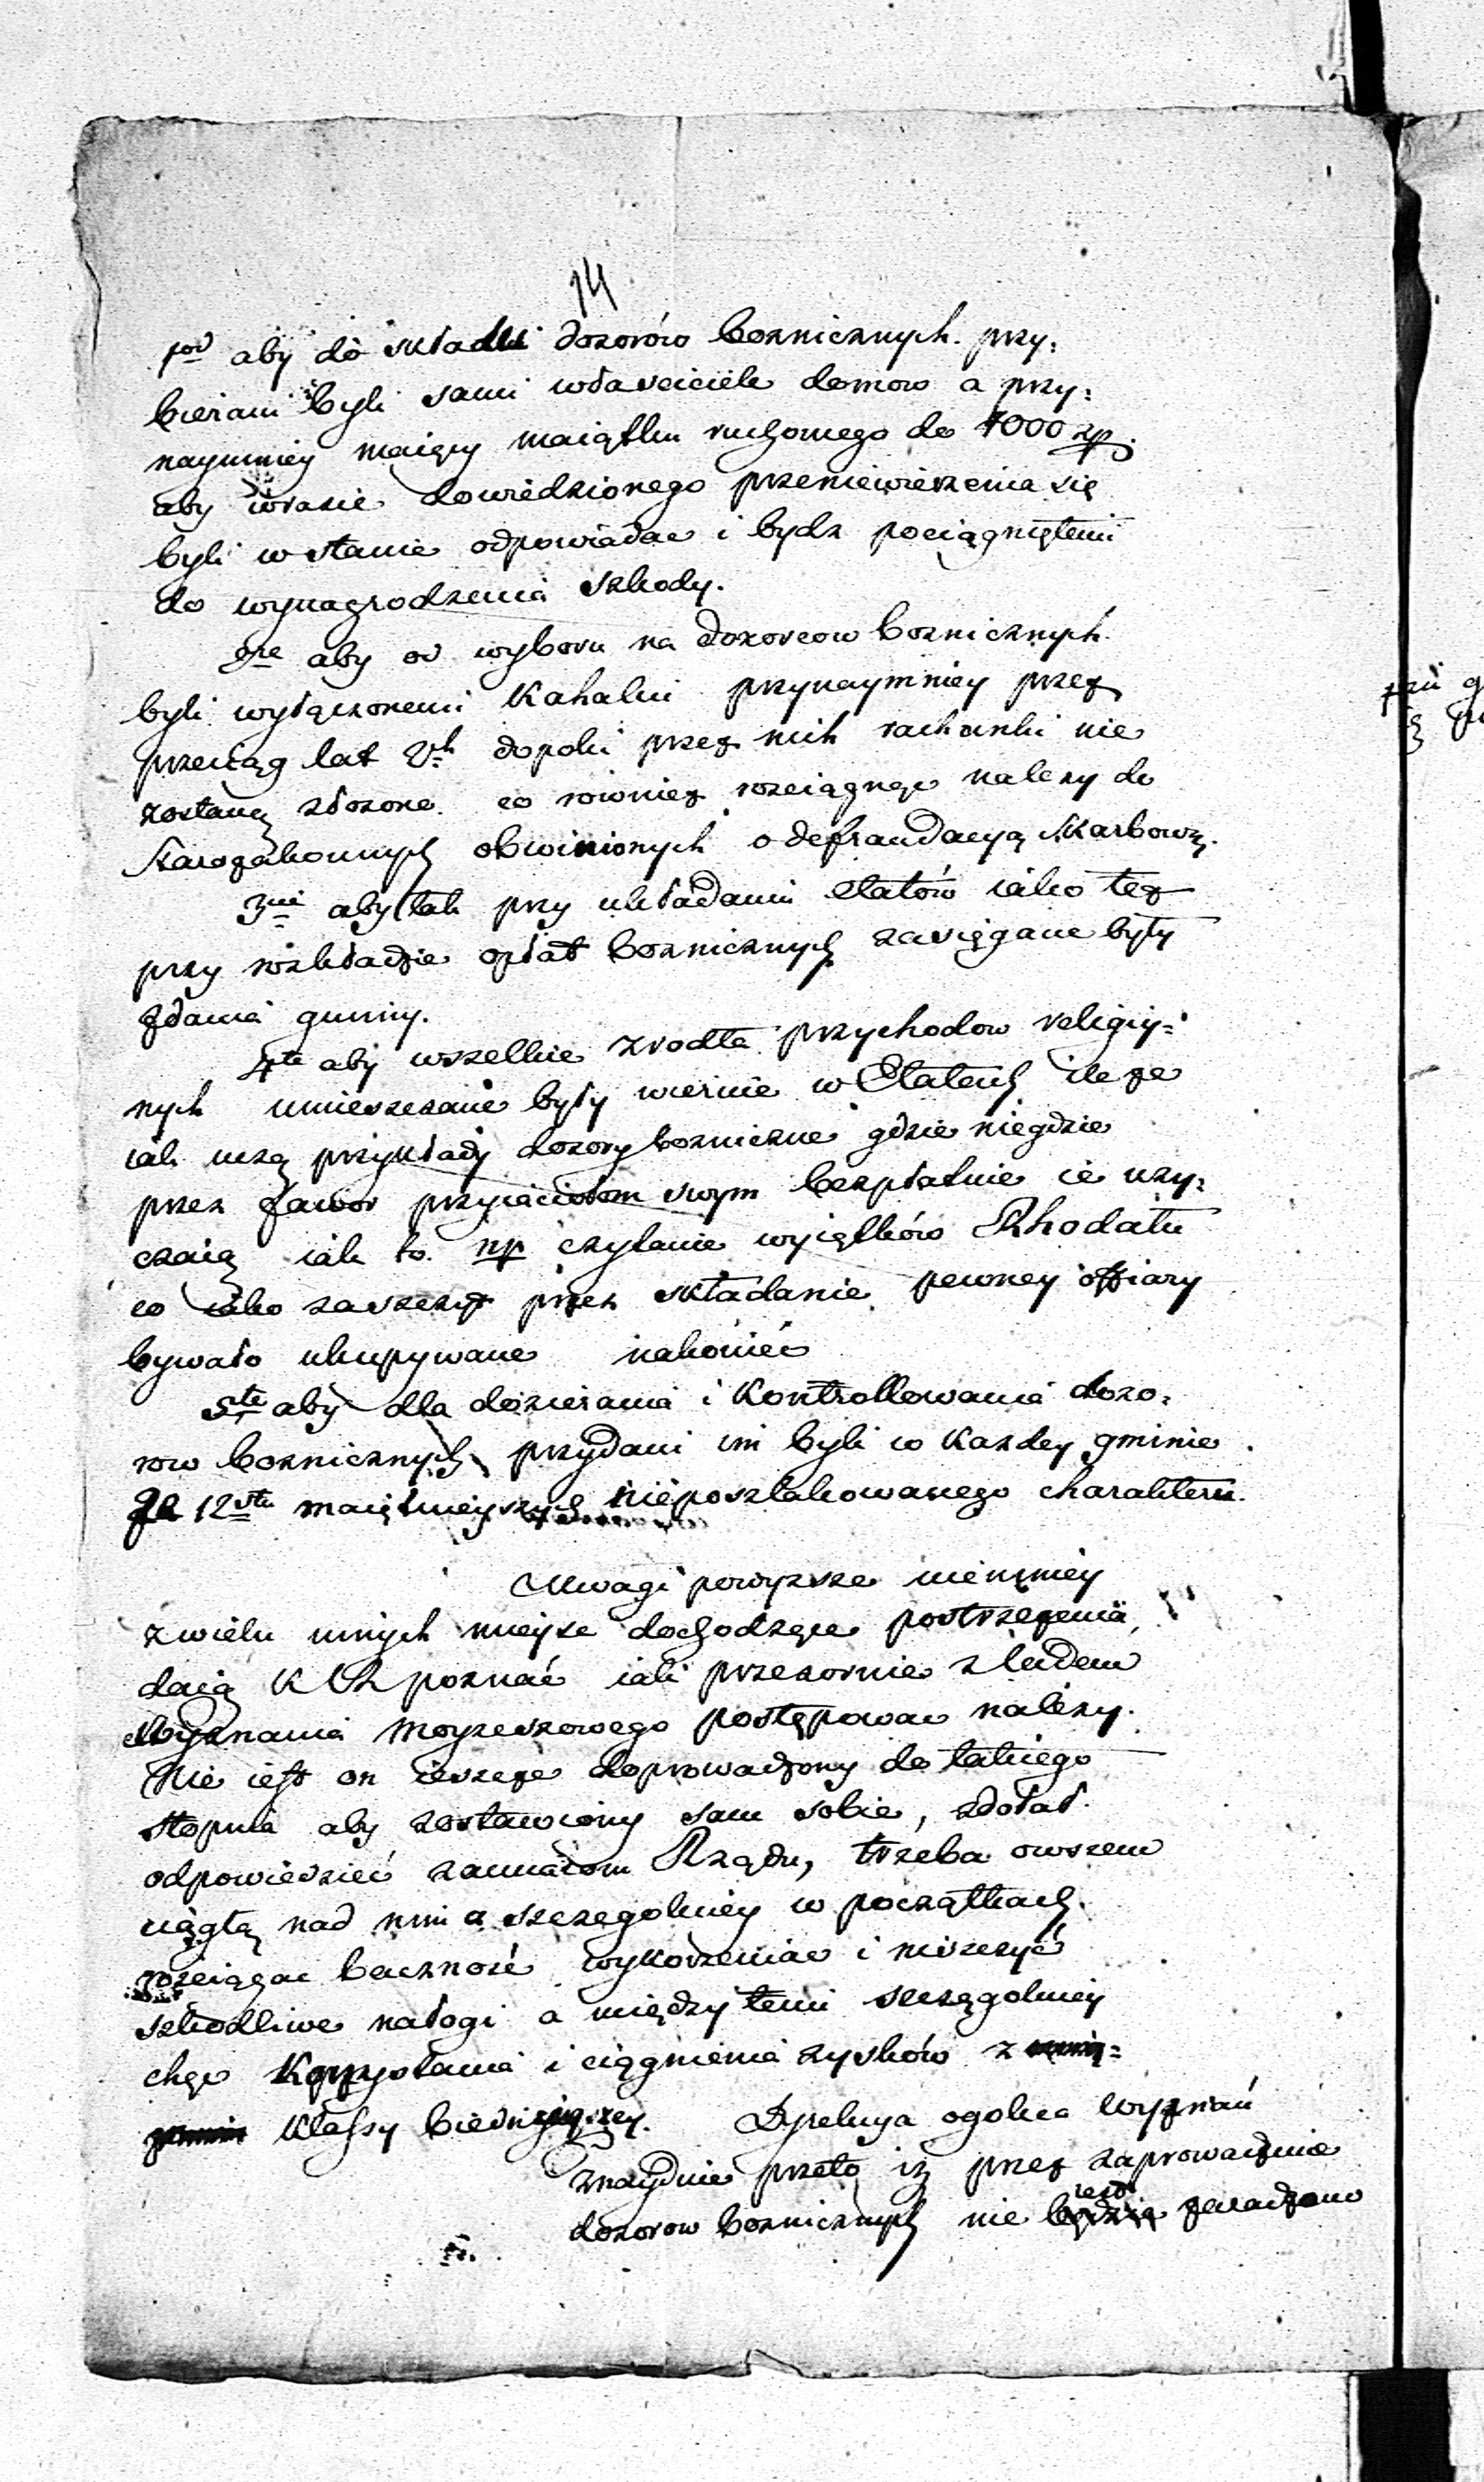 14
1od aby do składu dozorów boznicznych. przy=
bierani byli sami własciciele domow a przy=
naymniey maiący maiątku ruchomego do 1000 zp.
aby wrazie dowiedzionego przeniewierzenia się
byli w stanie odpowiadac i bydz pociągniętemi
do wynagrodzenia szkody.
2re aby od wyboru na dozorcow boznicznych
byli wyłączonemi Kahalni przynaymniey przez
przeciąg lat 2ch dopoki przez nich rachunki nie
zostaną złozone. co rownież rozciągnąc nalezy do
Starozakonnych obwinionych o defraudacyą Skarbową.
3cie aby tak przy układaniu etatów iako też
przy rozkładzie opłat boznicznych zasięgane były
zdania gminy.
4te aby wszelkie zrodła przychodow religiy=
nych umieszczane były wiernie w Etatach ileże
iak uczą przykłady dozory bozniczne gdzie niegdzie
przez fawor przyiaciołom swym bezpłatnie ie uzy=
czaią iak to np czytanie wyiątków Rhodału
co iako zaszczyt przez składanie pewney offiary
bywało ukupywane nakoniec
5te aby dla dozierania i Kontrollowania dozo=
row boznicznych przydani im byli w Kazdey gminie
12stu maiętnieyszych nieposzlakowanego charakteru.
Uwagi powyzsze niemniey
z wielu innych mieysc dochodzące postrzeżenia,
daią K poznać iak przezornie z ludem
Wyznania Moyzeszowego postępowac nalezy.
Nie iest on ieszcze doprowadzony do takiego
stopnia aby zostawiony sam sobie, zdołał
odpowiedzieć zamiarom Rządu, trzeba owszem
ciągłą nad nim a szczegolniey w początkach
rozciągac baczność wykorzeniac i niszczyć
szkodliwe nałogi a między temi szczegolniey
chęc Korzystania i ciągnienia zysków z
Klassy biednieyszey. Dyrekcya ogolna Wyznań
znaydzie przeto iż przez zaprowadzenie
dozorow boznicznych nie iest zaradzono